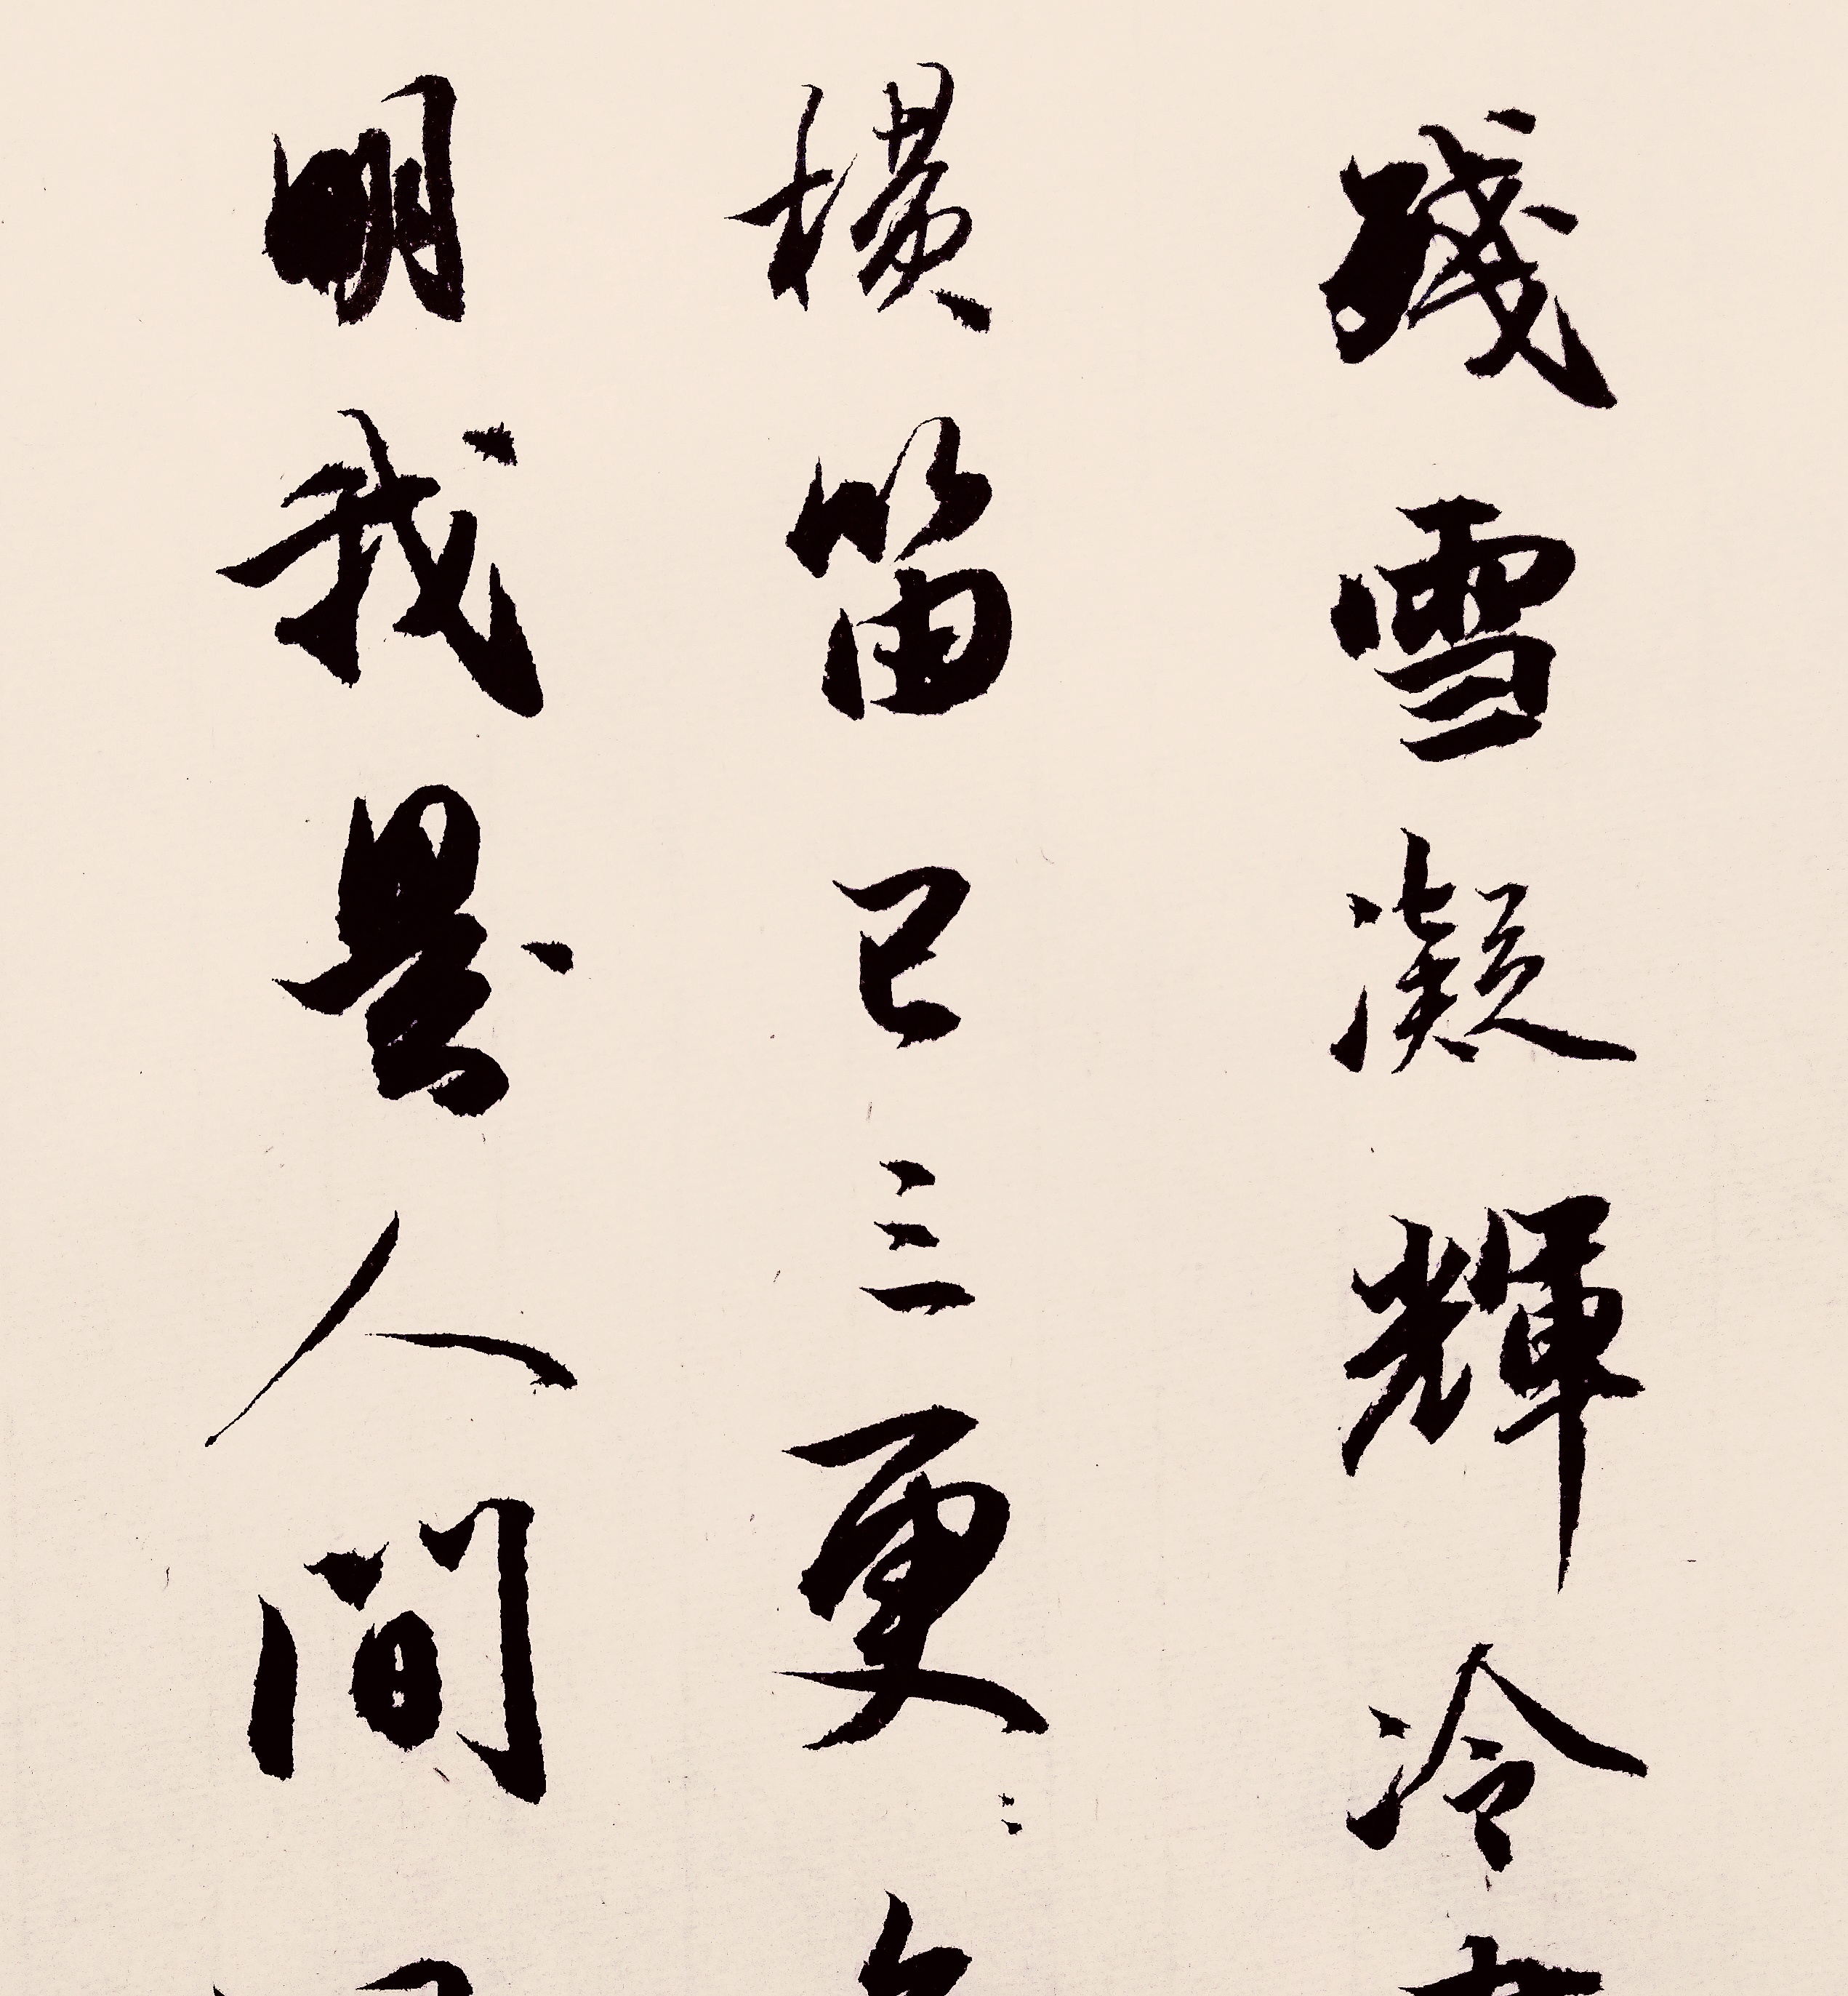 殘雪凝輝冷
橫笛已三更〻
朙我是人間